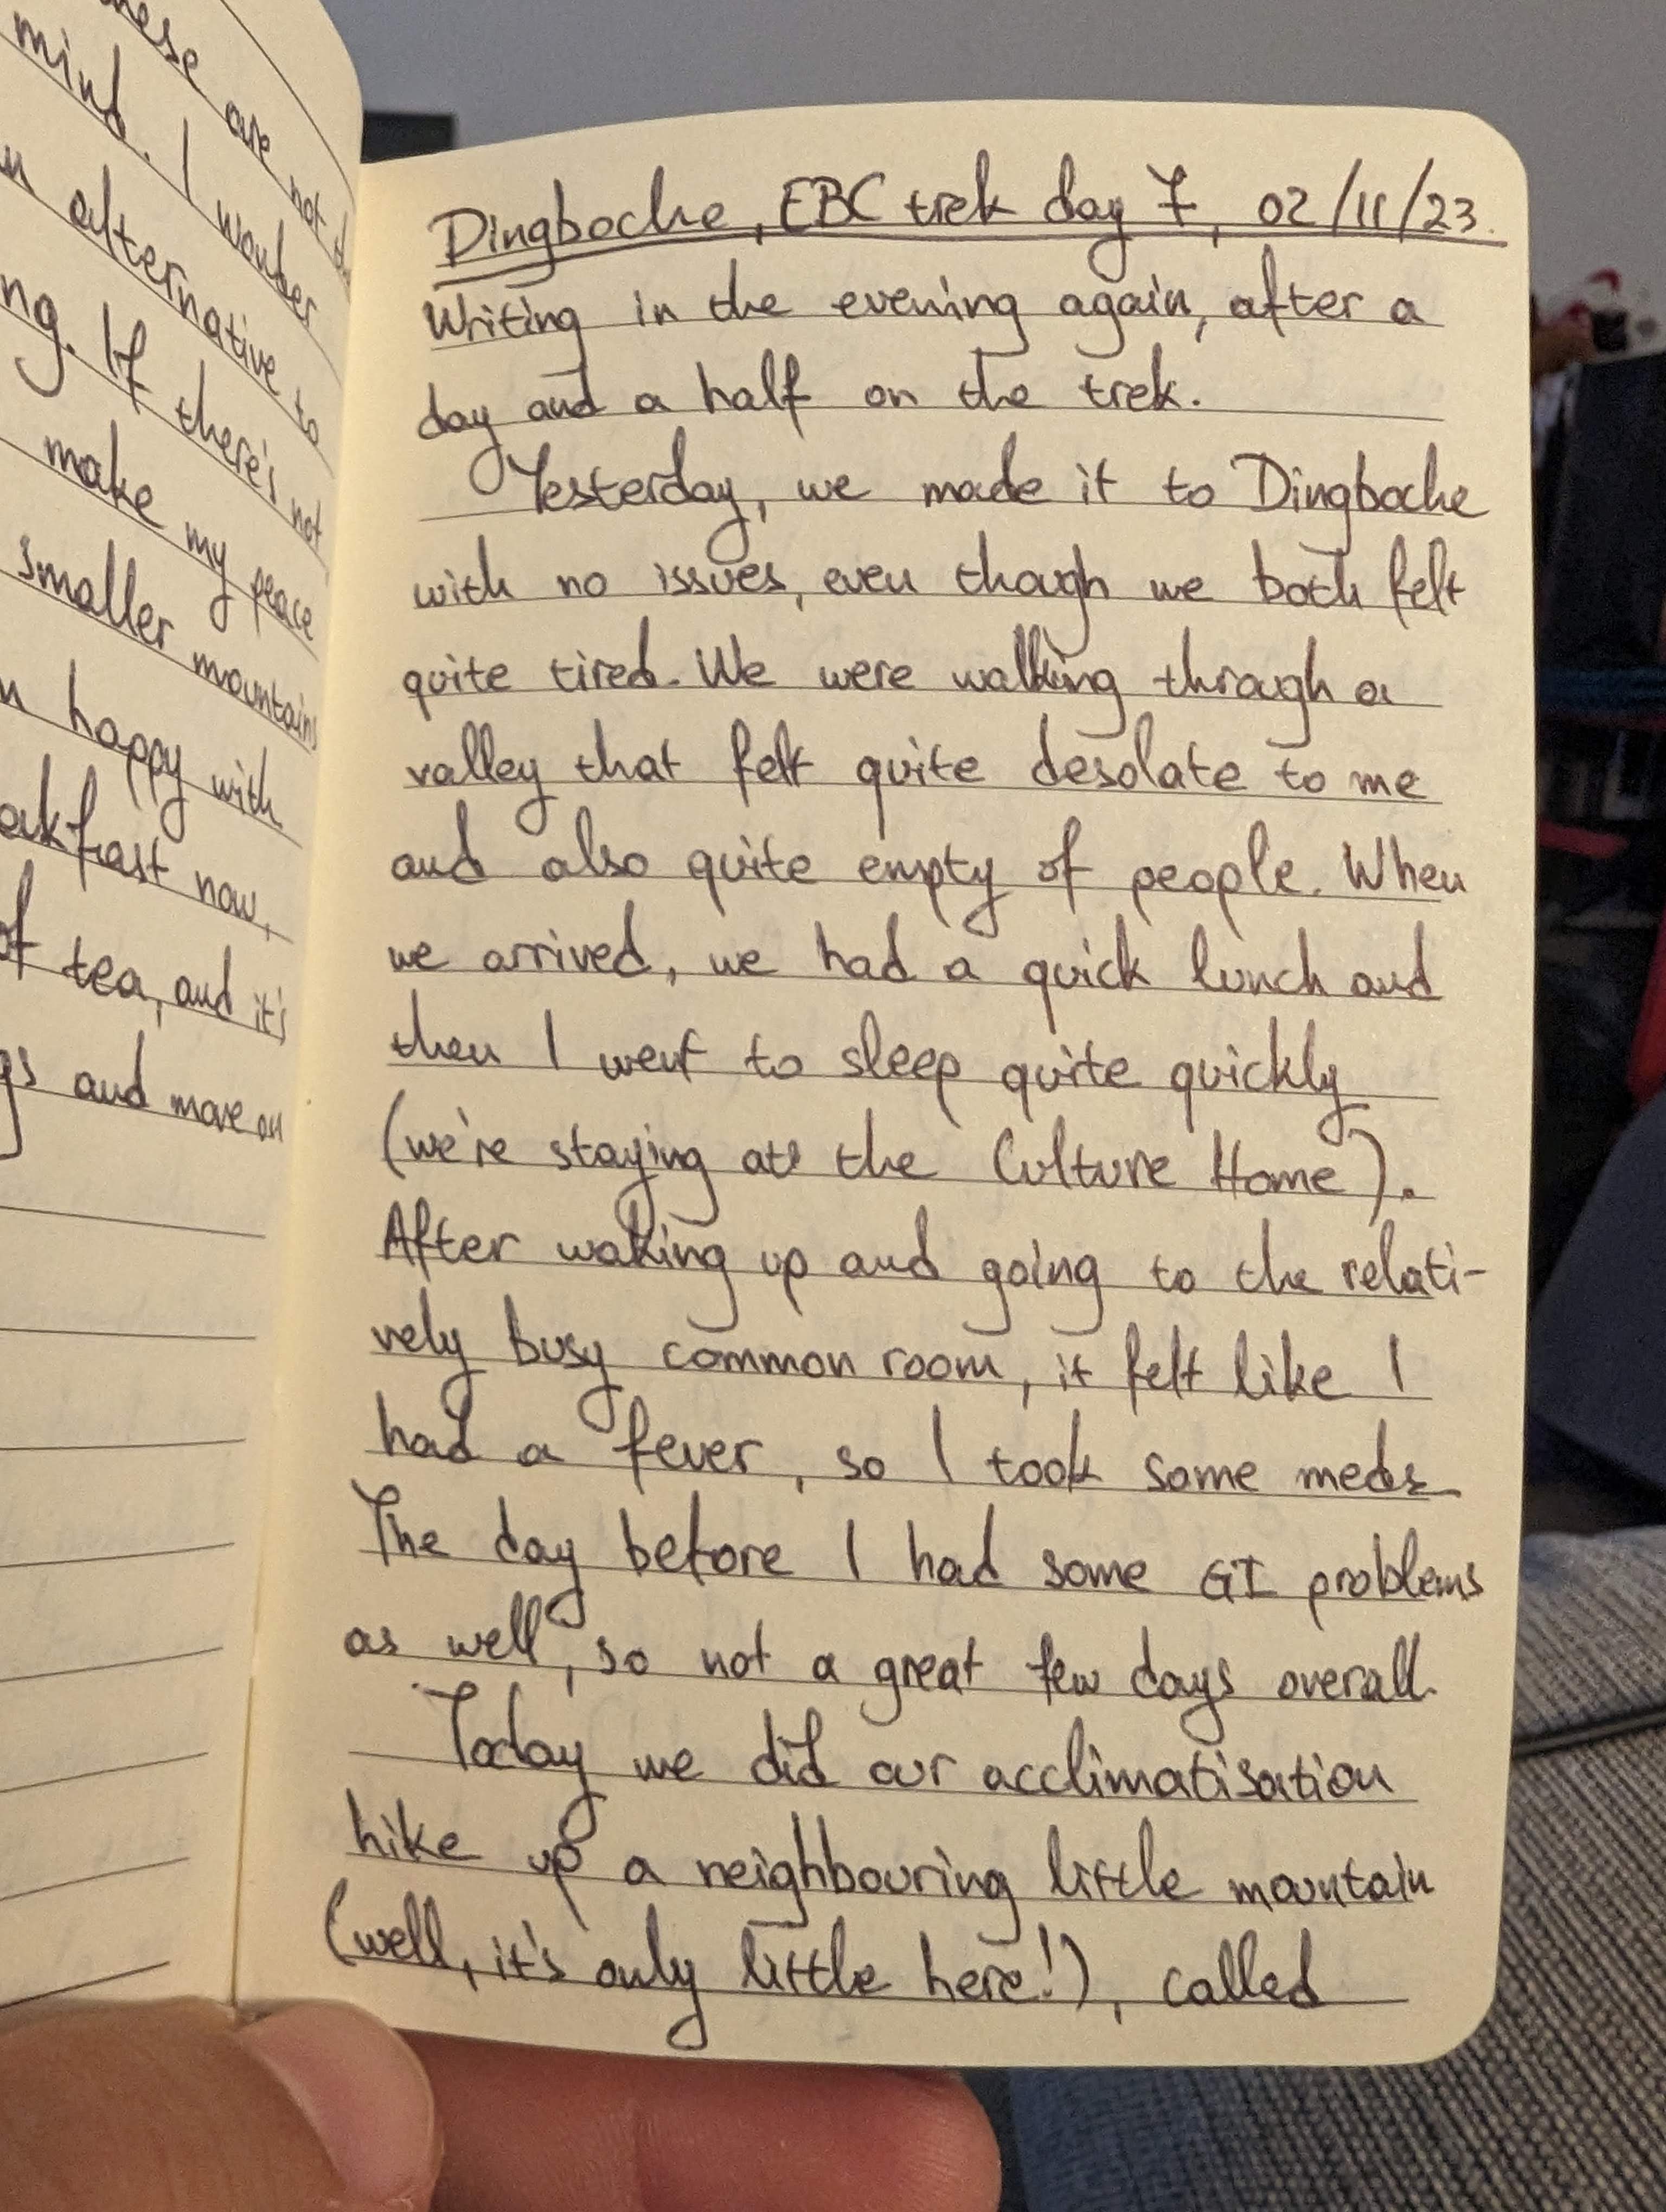 nese are not
mind. I wonder
alternative to
ng. If there's not
make my peace
smaller mountains
happy with
eakfast now,
of tea, and it's
gs and move on
Dingboche, EBC trek day 7, 02/11/23.
Writing in the evening again, after a
day and a half on the trek.
Yesterday, we made it to Dingboche
with no issues, even though we both felt
quite tired. We were walking through a
valley that felt quite desolate to me
and also quite empty of people. When
we arrived, we had a quick lunch and
then I went to sleep quite quickly
(we're staying at the Culture Home).
After waking up and going to the relati-
vely busy common room, it felt like I
had a fever, so I took some meds
The day before I had some GI problems
as well, so not a great few days overall.
Today we did our acclimatisation
hike up a neighbouring little mountain
(well, it's only little here!), called